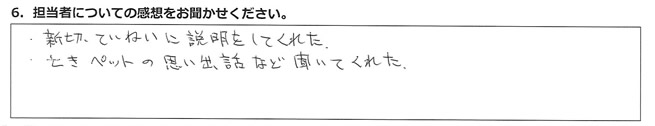 6. 担当者についての感想をお聞かせください。
・新切、ていねいに説明をしてくれた。
・ときペットの思い出話など聞いてくれた。